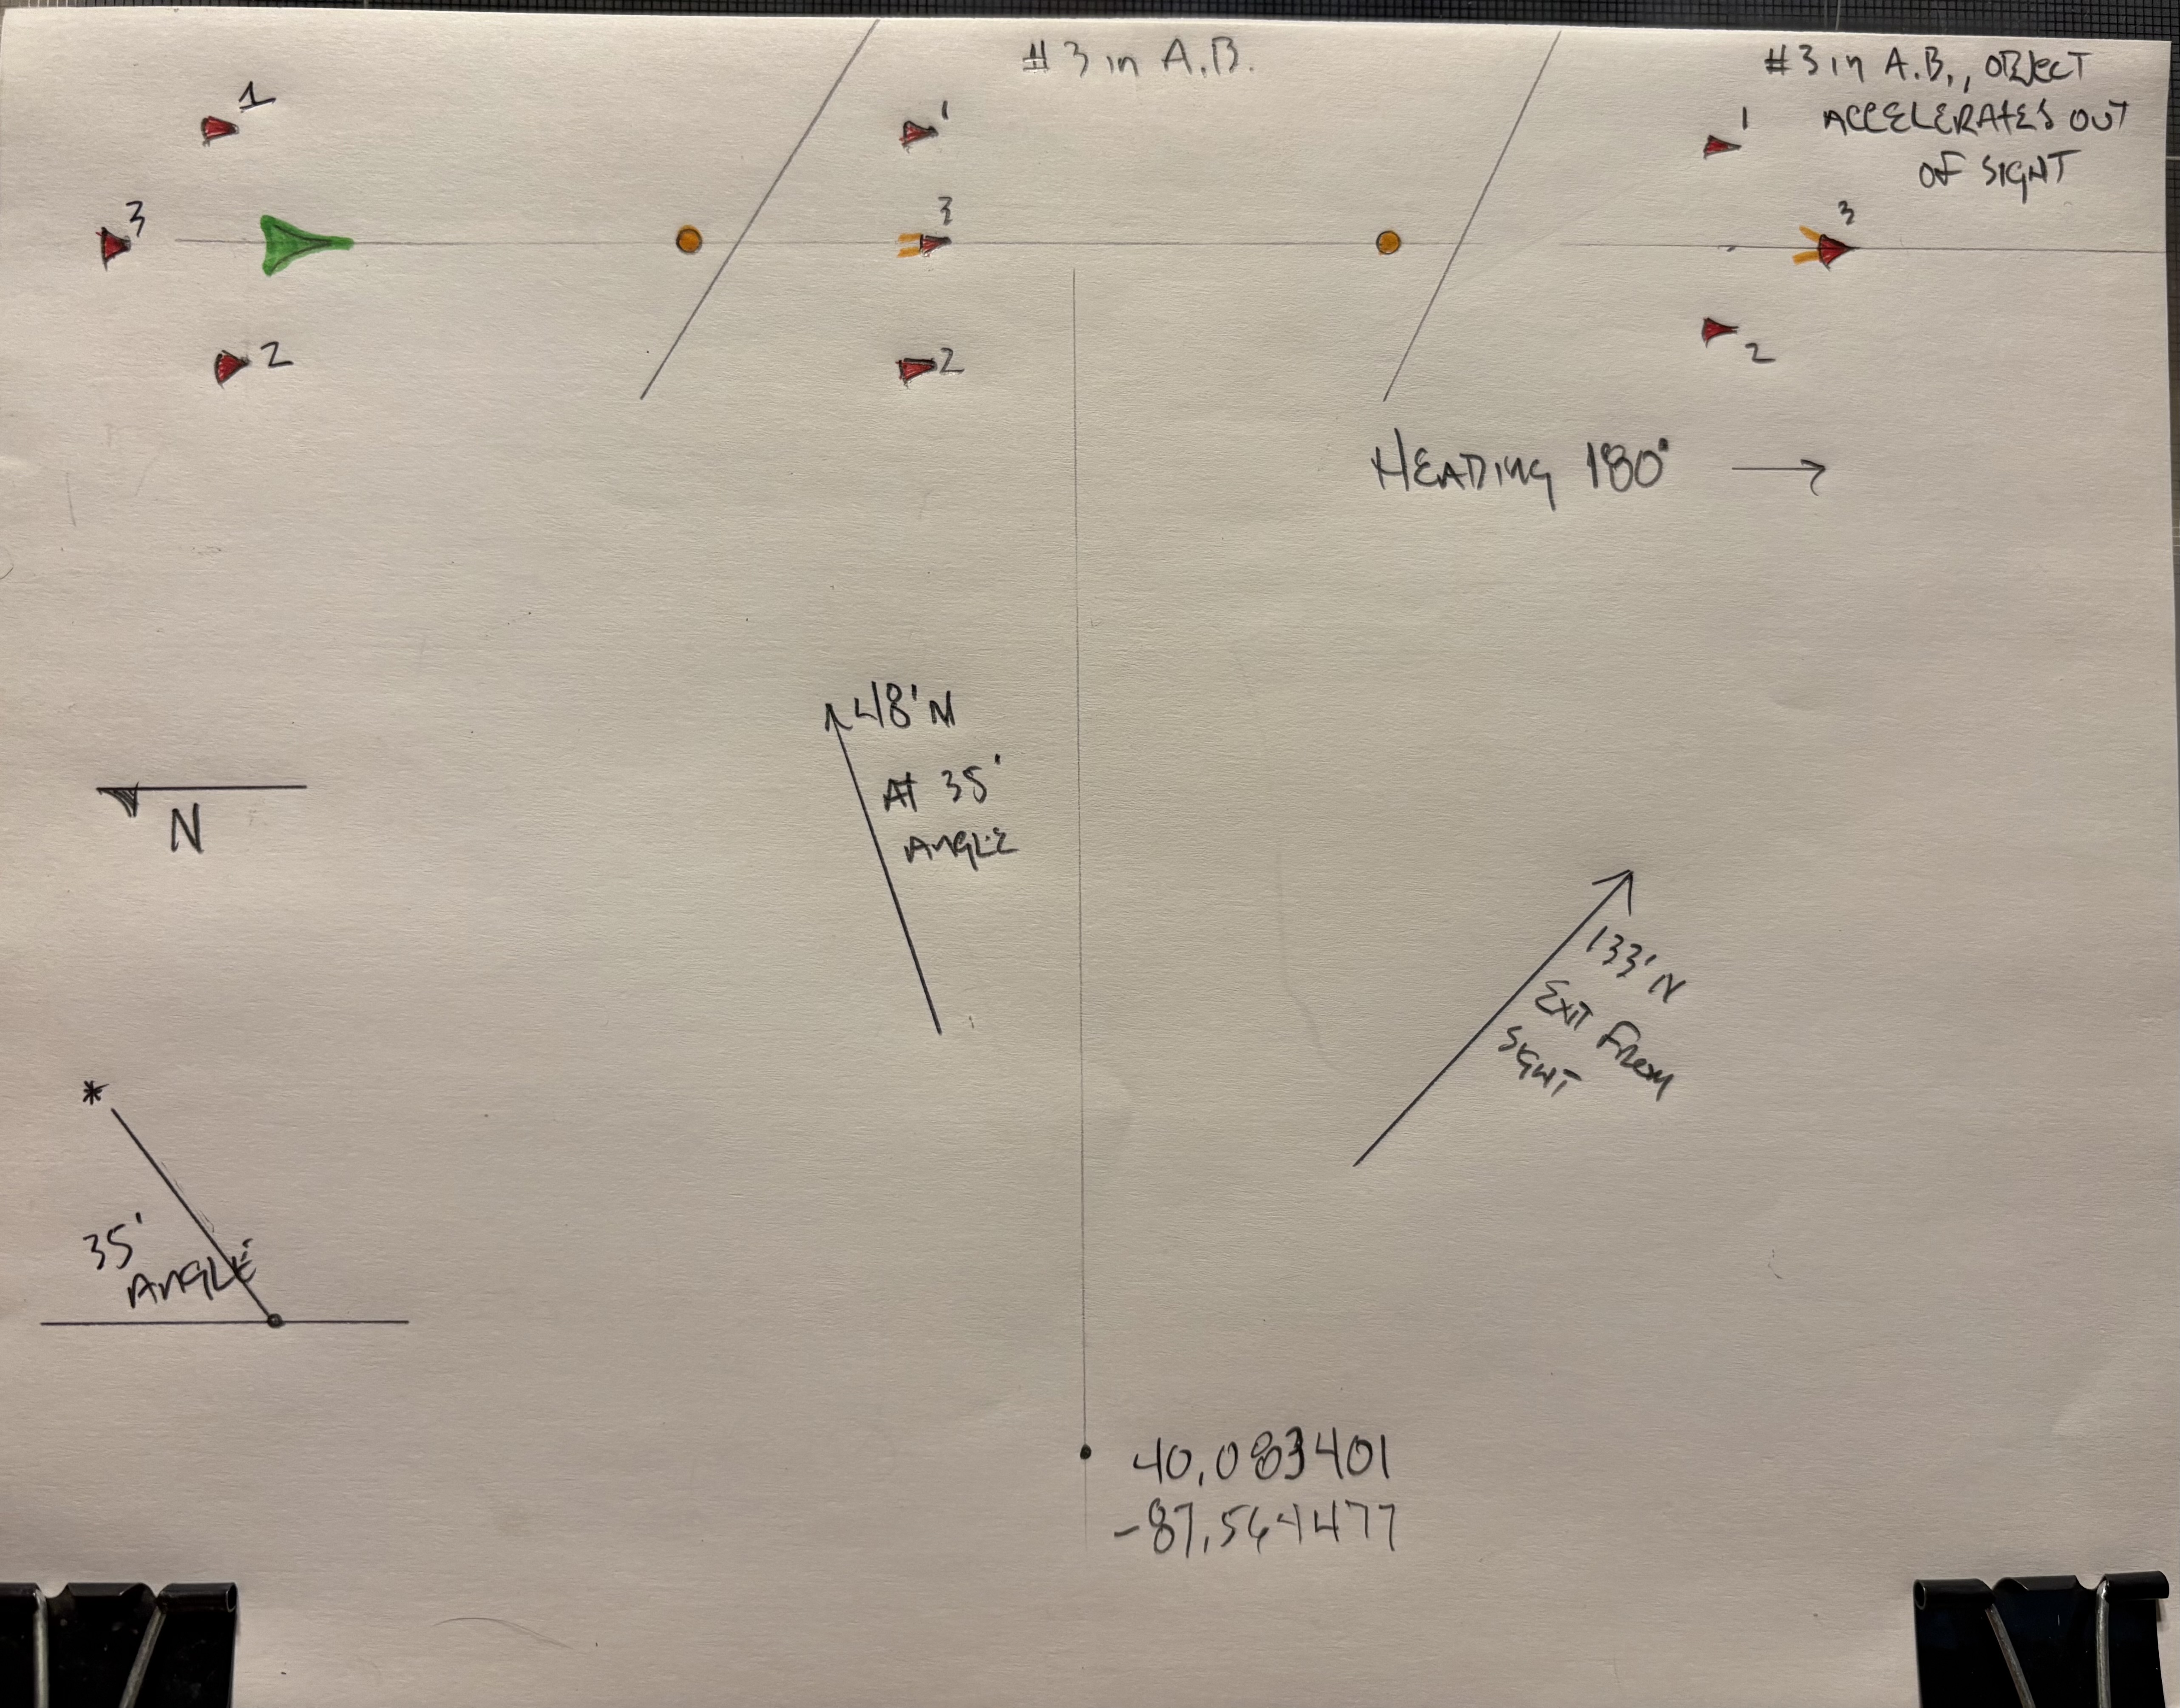 #3 in A.B.
#3 in A.B., OBJECT
ACCELERATES OUT
OF SIGHT
1
3
2
1
3
2
1
3
2
HEADING 180°
48'N
At 35'
ANGLE
N
133'N
EXIT FROM
SIGHT
35'
ANGLE
40.083401
-87.561477